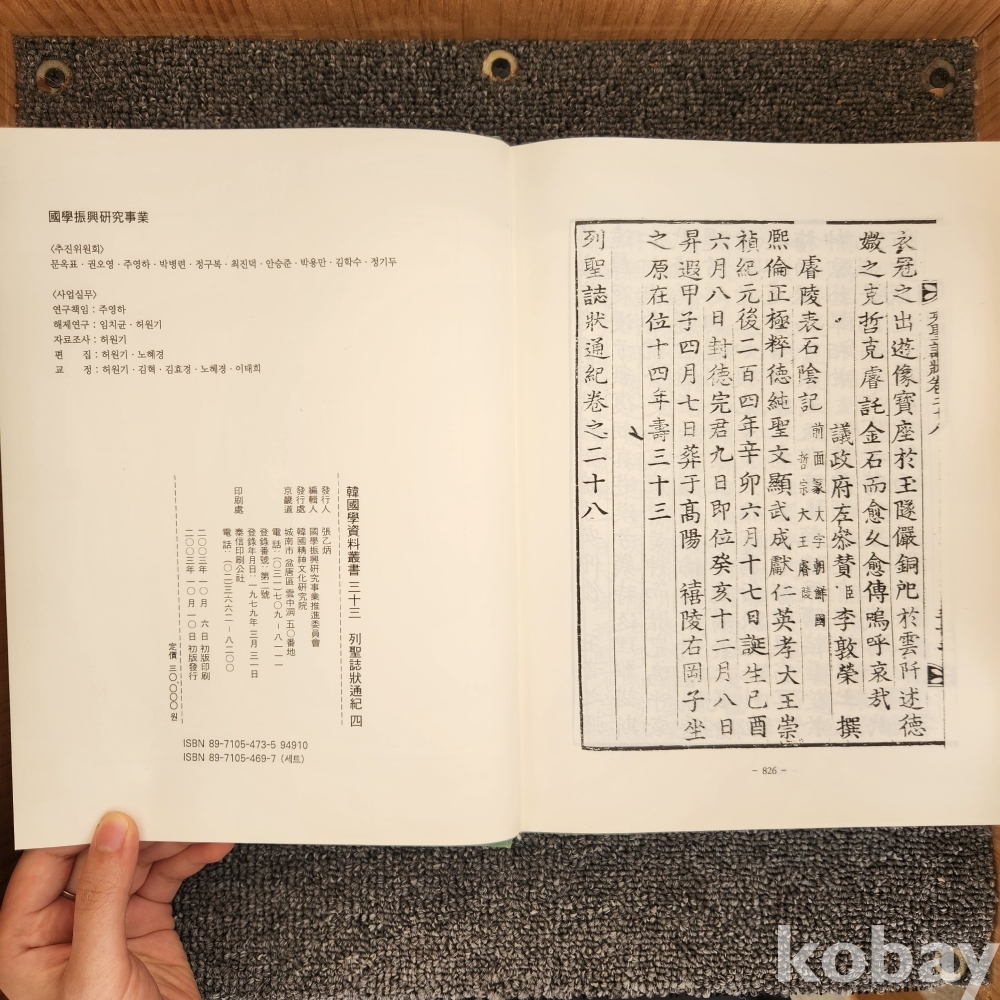 國學振興硏究事業
〈추진위원회〉
문옥표 · 권오영 · 주영하 · 박병련 · 정구복 · 최진덕 · 안승준 · 박용만 · 김학수 · 정기두
〈사업실무〉
연구책임 : 주영하
해제연구 : 임치균 · 허원기
자료조사 : 허원기
편 집 : 허원기 · 노혜경
교 정 : 허원기 · 김혁 · 김효경 · 노혜경 · 이태희
韓國學資料叢書 三十三 列聖誌狀通紀 四
發行人 張乙炳
編輯人 國學振興硏究事業推進委員會
發行處 韓國精神文化硏究院
京畿道 城南市 盆唐區 雲中洞 五〇番地
電話 : 〇三一-七〇九-八一一一
登錄番號 : 第二號
登錄年月日 : 一九七九年 三月 三一日
印刷處 泰信印刷公社
電話 : 〇二-二三六六-八二〇〇
二〇〇三年 一〇月 六日 初版印刷
二〇〇三年 一〇月 一〇日 初版發行
定價 三〇,〇〇〇 원
ISBN 89-7105-473-5 94910
ISBN 89-7105-469-7 (세트)
列聖誌狀卷二十八
衣冠之出遊像寶座於玉隧儼銅戺於雲阡述德
媺之克哲克睿託金石而愈久愈傳嗚呼哀哉
議政府左叅贊臣李敦榮 撰
睿陵表石陰記
前面篆大字朝鮮國
哲宗大王睿陵
熙倫正極粹德純聖文顯武成獻仁英孝大王崇
禎紀元後二百四年辛卯六月十七日誕生己酉
六月八日封德完君九日即位癸亥十二月八日
昇遐甲子四月七日葬于高陽 禧陵右岡子坐
之原在位十四年壽三十三
列聖誌狀通紀卷之二十八
- 826 -
kobay